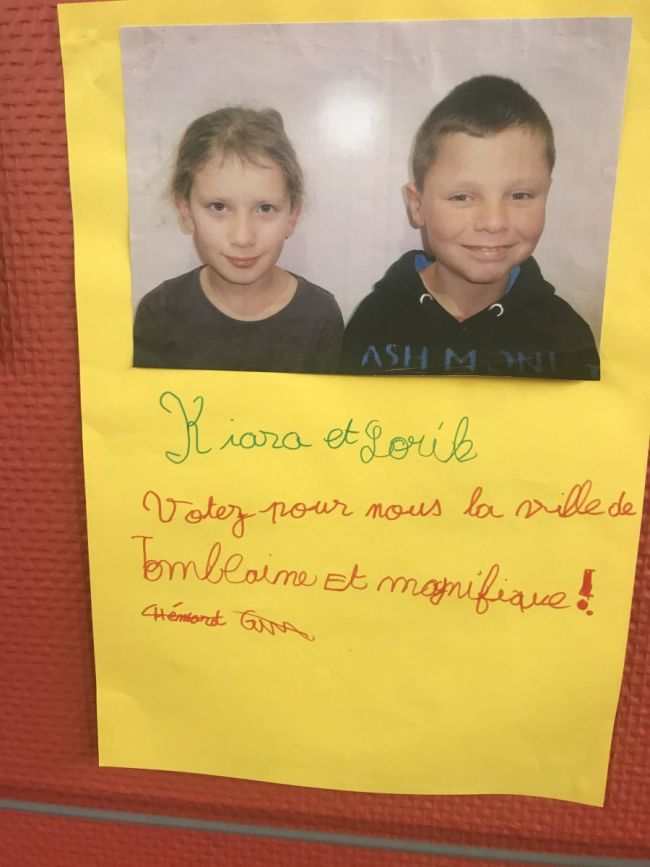 ASH MONT
Kiara et Lorik
Votez pour nous la ville de
Tomblaine Et magnifique !